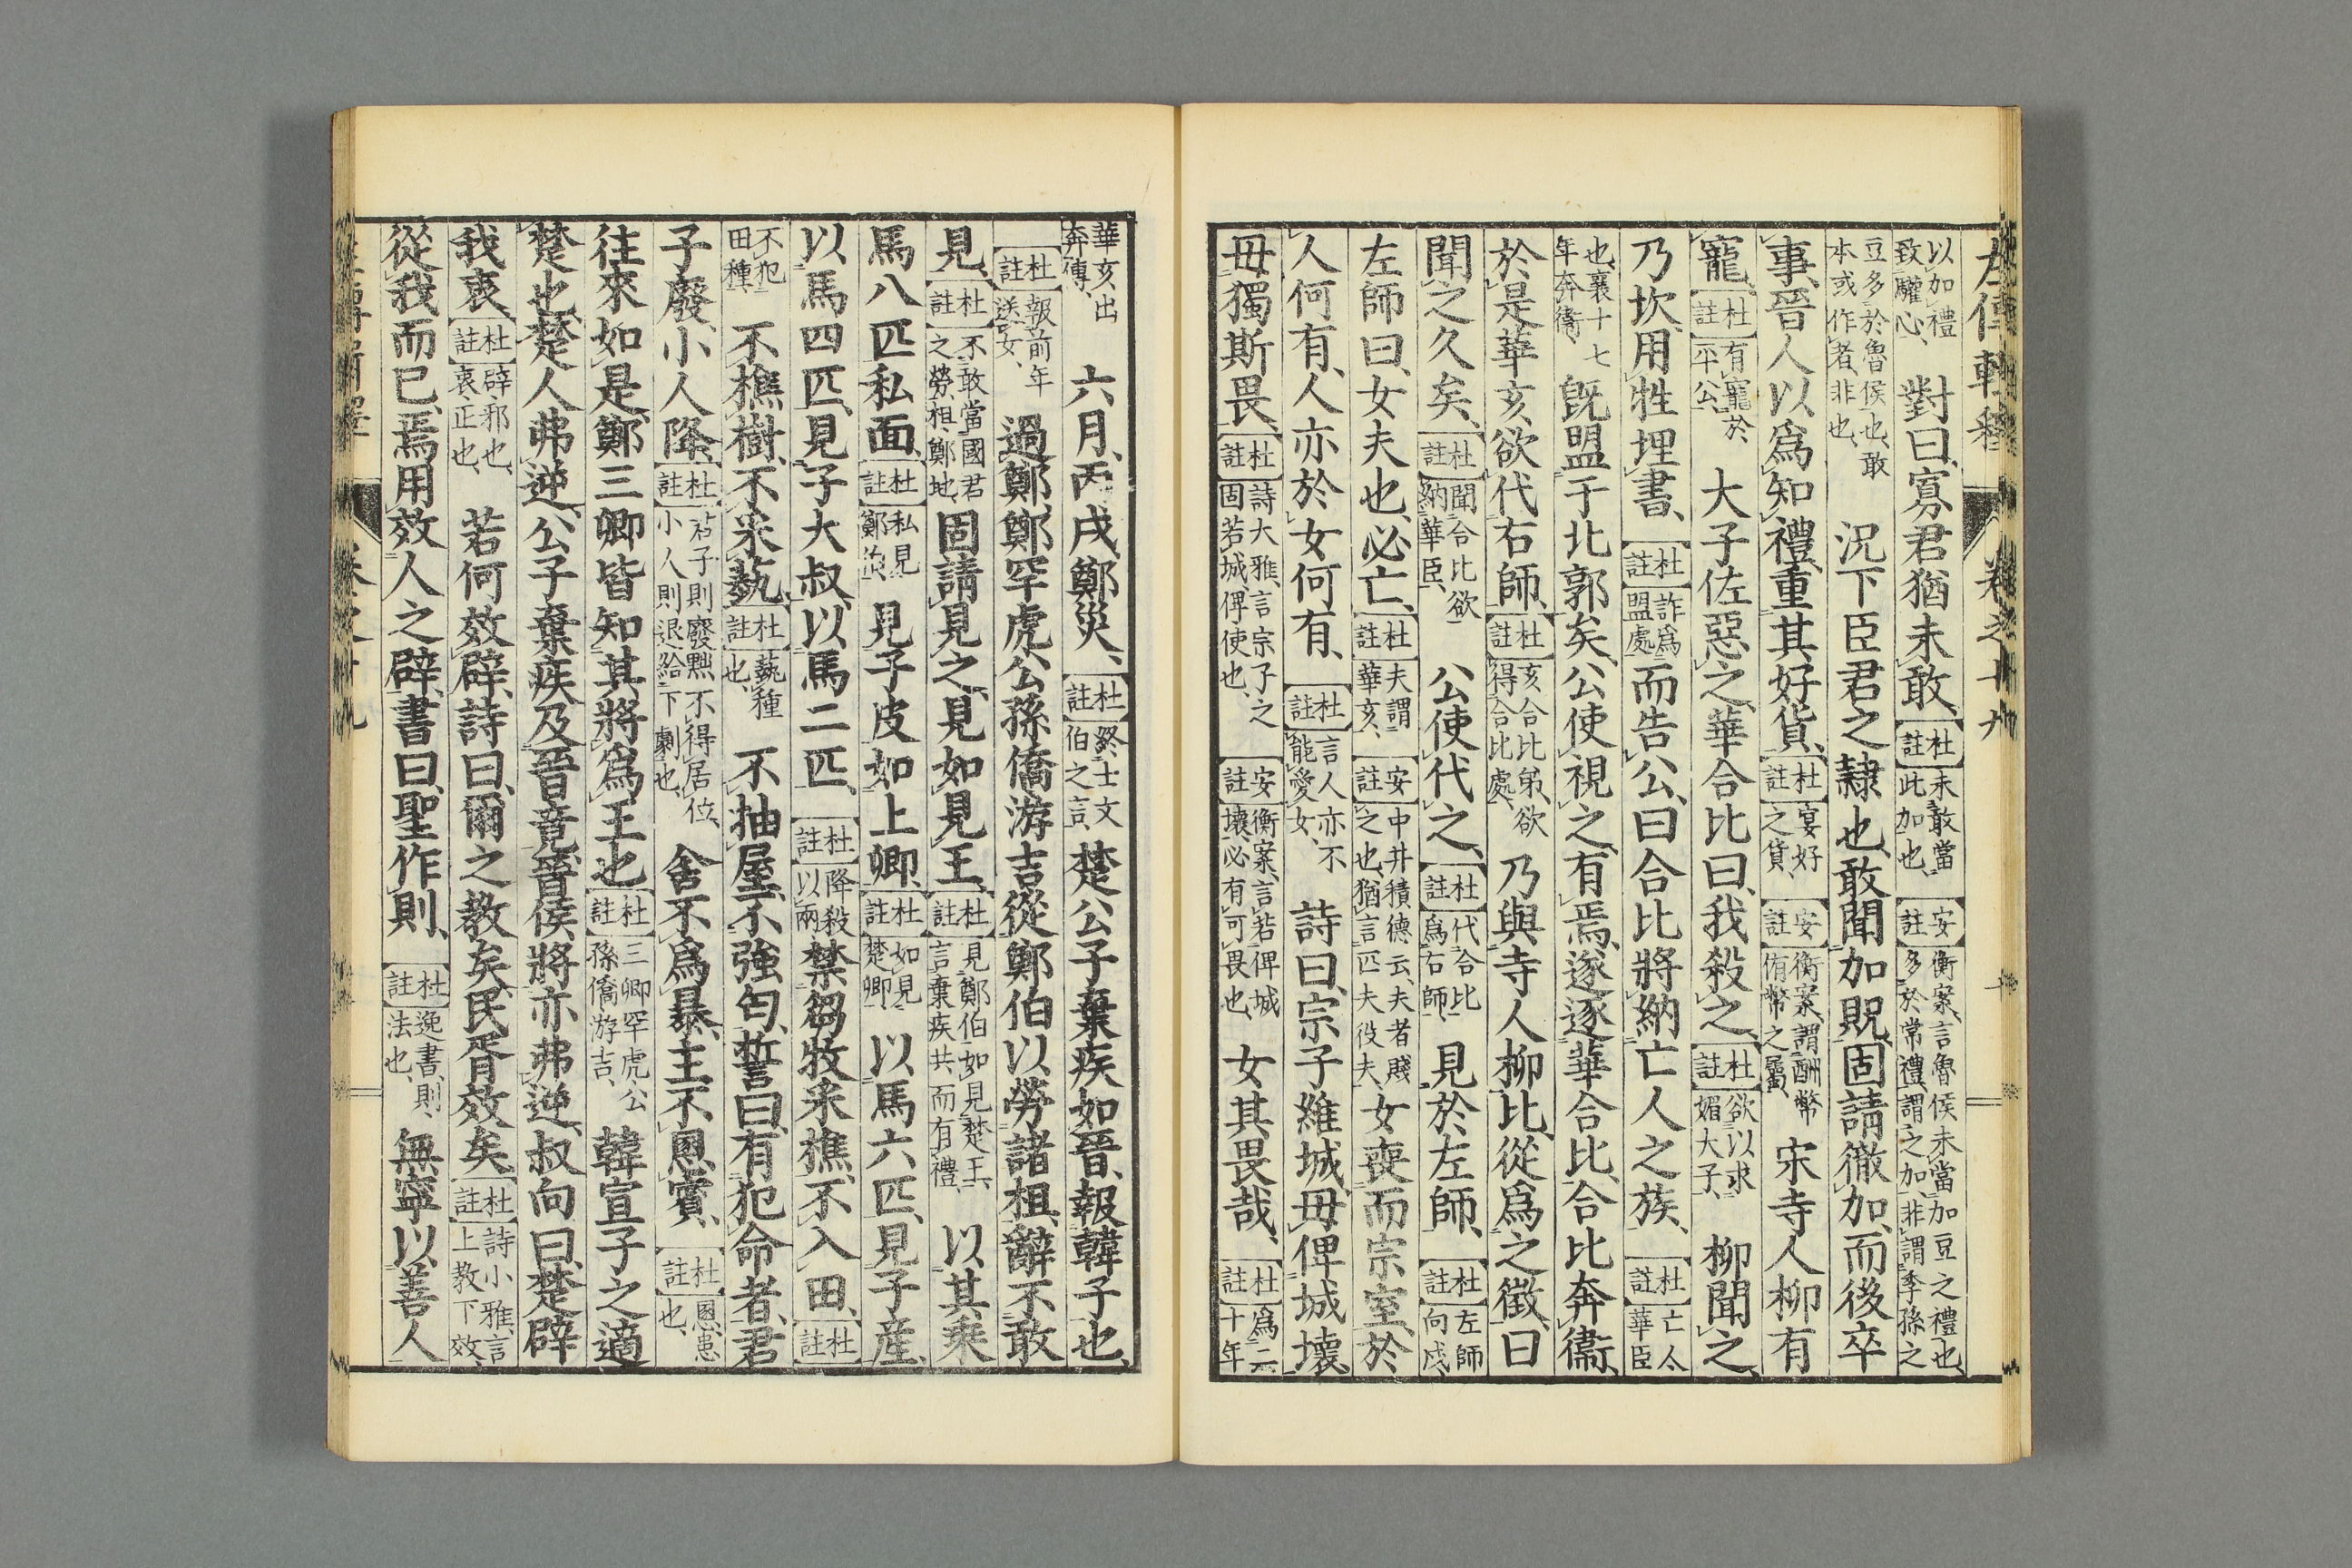 左傳輯釋 卷之十九
以加禮致驩心、對曰、寡君猶未敢、杜註未敢當此加也、安註衡案、言魯侯未當加豆之禮也、多於常禮、謂之加、非謂季孫之
豆多於魯侯也、敢本或作者、非也、況下臣君之隷也、敢聞加貺、固請徹加、而後卒
事、晉人以爲知禮、重其好貨、杜註宴好之貨、安註衡案、謂酬幣侑幣之屬、宋寺人柳有
寵、杜註有寵於平公、大子佐惡之、華合比曰、我殺之、杜註欲以求媚大子、柳聞之、
乃坎、用牲埋書、杜註詐爲盟處、而告公曰、合比將納亡人之族、杜註亡人華臣
也、襄十七年奔衞、旣盟于北郭矣、公使視之、有焉、遂逐華合比、合比奔衞、
於是華亥欲代右師、杜註亥合比弟、欲得合比處、乃與寺人柳比、從爲之徵、曰
聞之久矣、杜註聞合比欲納華臣、公使代之、杜註代合比爲右師、見於左師、杜註左師向戌、
左師曰、女夫也、必亡、杜註夫謂華亥、安註中井積德云、夫者賤之也、猶言匹夫役夫、女喪而宗室、於
人何有、人亦於女何有、杜註言人亦不能愛女、詩曰、宗子維城、毋俾城壞、
毋獨斯畏、杜註詩大雅、言宗子之固若城、俾使也、安註衡案、言若俾城壞、必有可畏也、女其畏哉、杜註爲二十年
華亥出奔傳、六月、丙戌、鄭災、杜註終士文伯之言、楚公子棄疾如晉、報韓子也、
杜註報前年送女、過鄭、鄭罕虎公孫僑游吉從鄭伯以勞諸柤、辭不敢
見、杜註不敢當國君之勞、柤、鄭地、固請見之、見如見王、杜註見鄭伯如見楚王、言棄疾共而有禮、以其乘
馬八匹私面、杜註私見鄭伯、見子皮如上卿、杜註如見楚卿、以馬六匹、見子産、
以馬四匹、見子大叔、以馬二匹、杜註降殺以兩、禁芻牧采樵、不入田、杜註
不犯田種、不樵樹、不采蓺、杜註蓺種也、不抽屋、不強匄、誓曰、有犯命者、君
子廢、小人降、杜註君子則廢黜不得居位、小人則退給下劇也、舍不爲暴、主不慁賓、杜註慁患也、
往來如是、鄭三卿皆知其將爲王也、杜註三卿罕虎公孫僑游吉、韓宣子之適
楚也、楚人弗逆、公子棄疾及晉竟、晉侯將亦弗逆、叔向曰、楚辟
我衷、杜註辟、邪也、衷、正也、若何效辟、詩曰、爾之敎矣、民胥效矣、杜註詩小雅、言上敎下效、
從我而已、焉用效人之辟、書曰、聖作則、杜註逸書、則、法也、無寧以善人